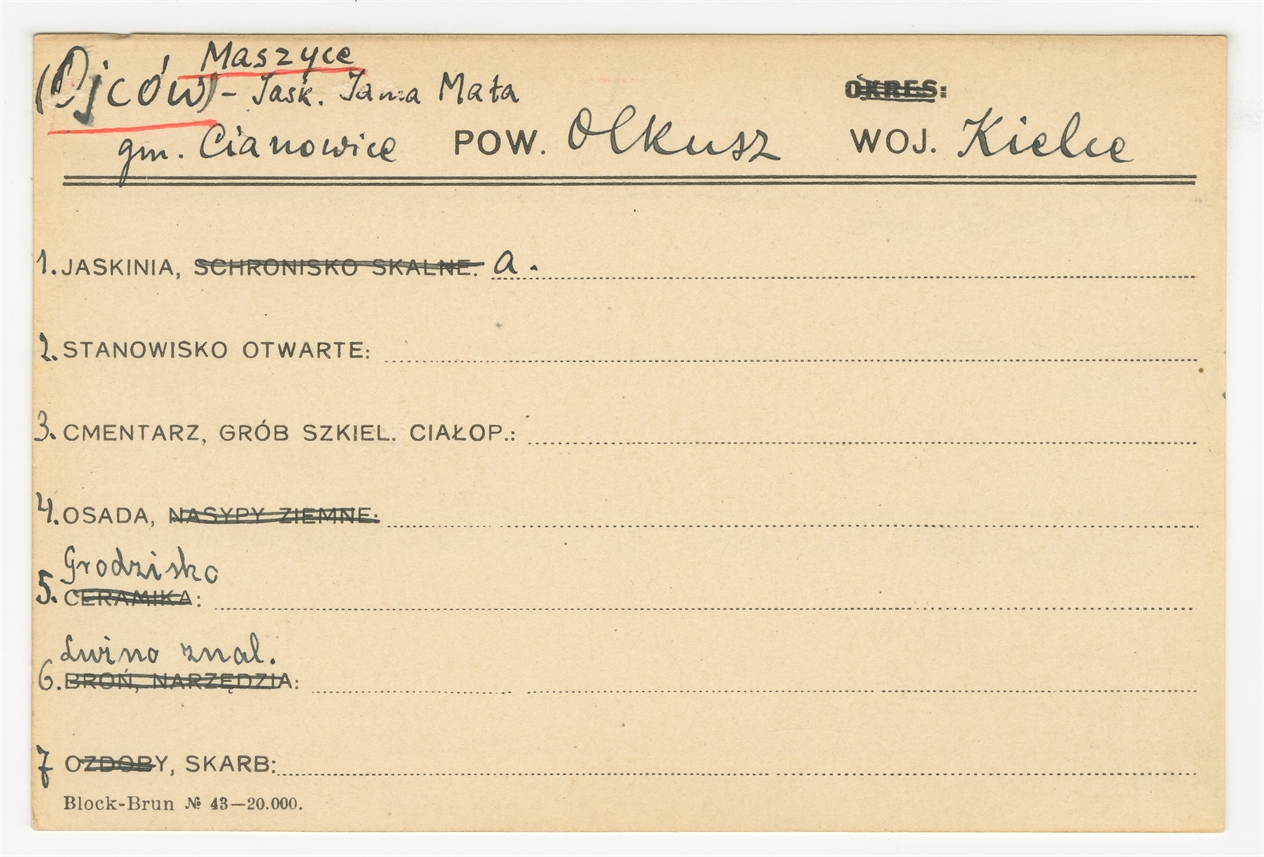 Maszyce
(Ojców) - Jask. Jama Mała OKRES:
gm. Cianowice POW. Olkusz WOJ. Kielce
1. JASKINIA, SCHRONISKO SKALNE: a.
2. STANOWISKO OTWARTE:
3. CMENTARZ, GRÓB SZKIEL. CIAŁOP.:
4. OSADA, NASYPY ZIEMNE:
Grodzisko
5. CERAMIKA:
Luźno znal.
6. BROŃ, NARZĘDZIA:
7 OZDOBY, SKARB:
Block-Brun № 43—20.000.